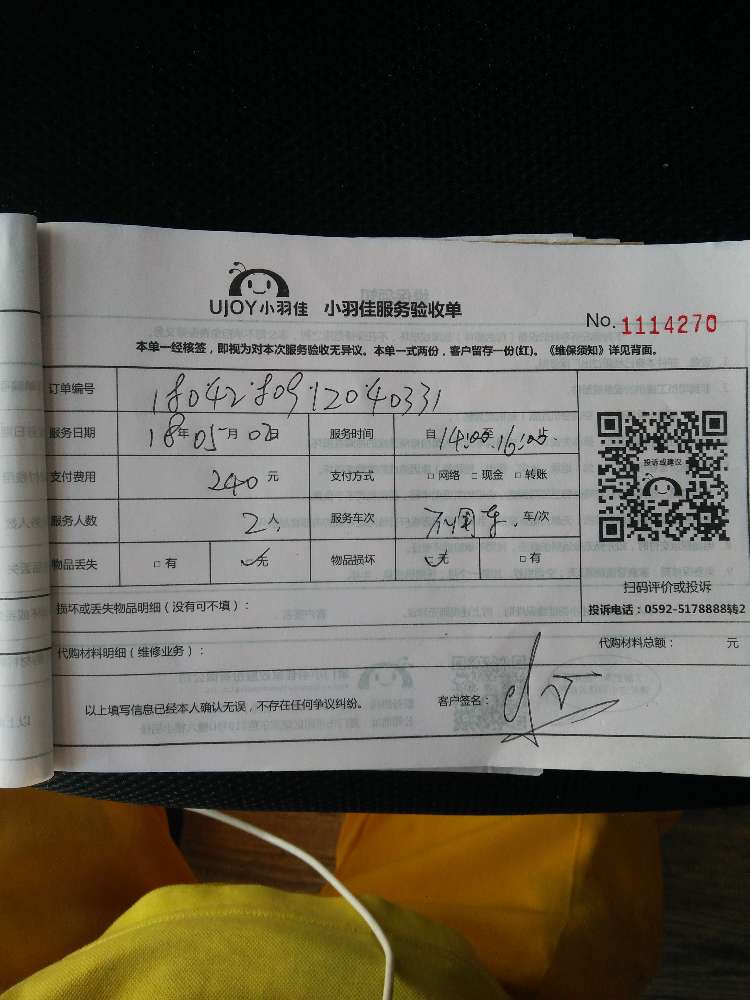 UJOY小羽佳 小羽佳服务验收单
No. 1114270
本单一经核签，即视为对本次服务验收无异议。本单一式两份，客户留存一份(红)。《维保须知》详见背面。
订单编号 1804280912040331
服务日期 18年05月02日 服务时间 自14:00至16:00止
支付费用 240元 支付方式 □网络 □现金 □转账
服务人数 2人 服务车次 不用车 车/次
物品丢失 □有 ✓无 物品损坏 ✓无 □有
投诉或建议
扫码评价或投诉
损坏或丢失物品明细（没有可不填）：
投诉电话：0592-5178888转2
代购材料明细（维修业务）： 代购材料总额： 元
以上填写信息已经本人确认无误，不存在任何争议纠纷。 客户签名：